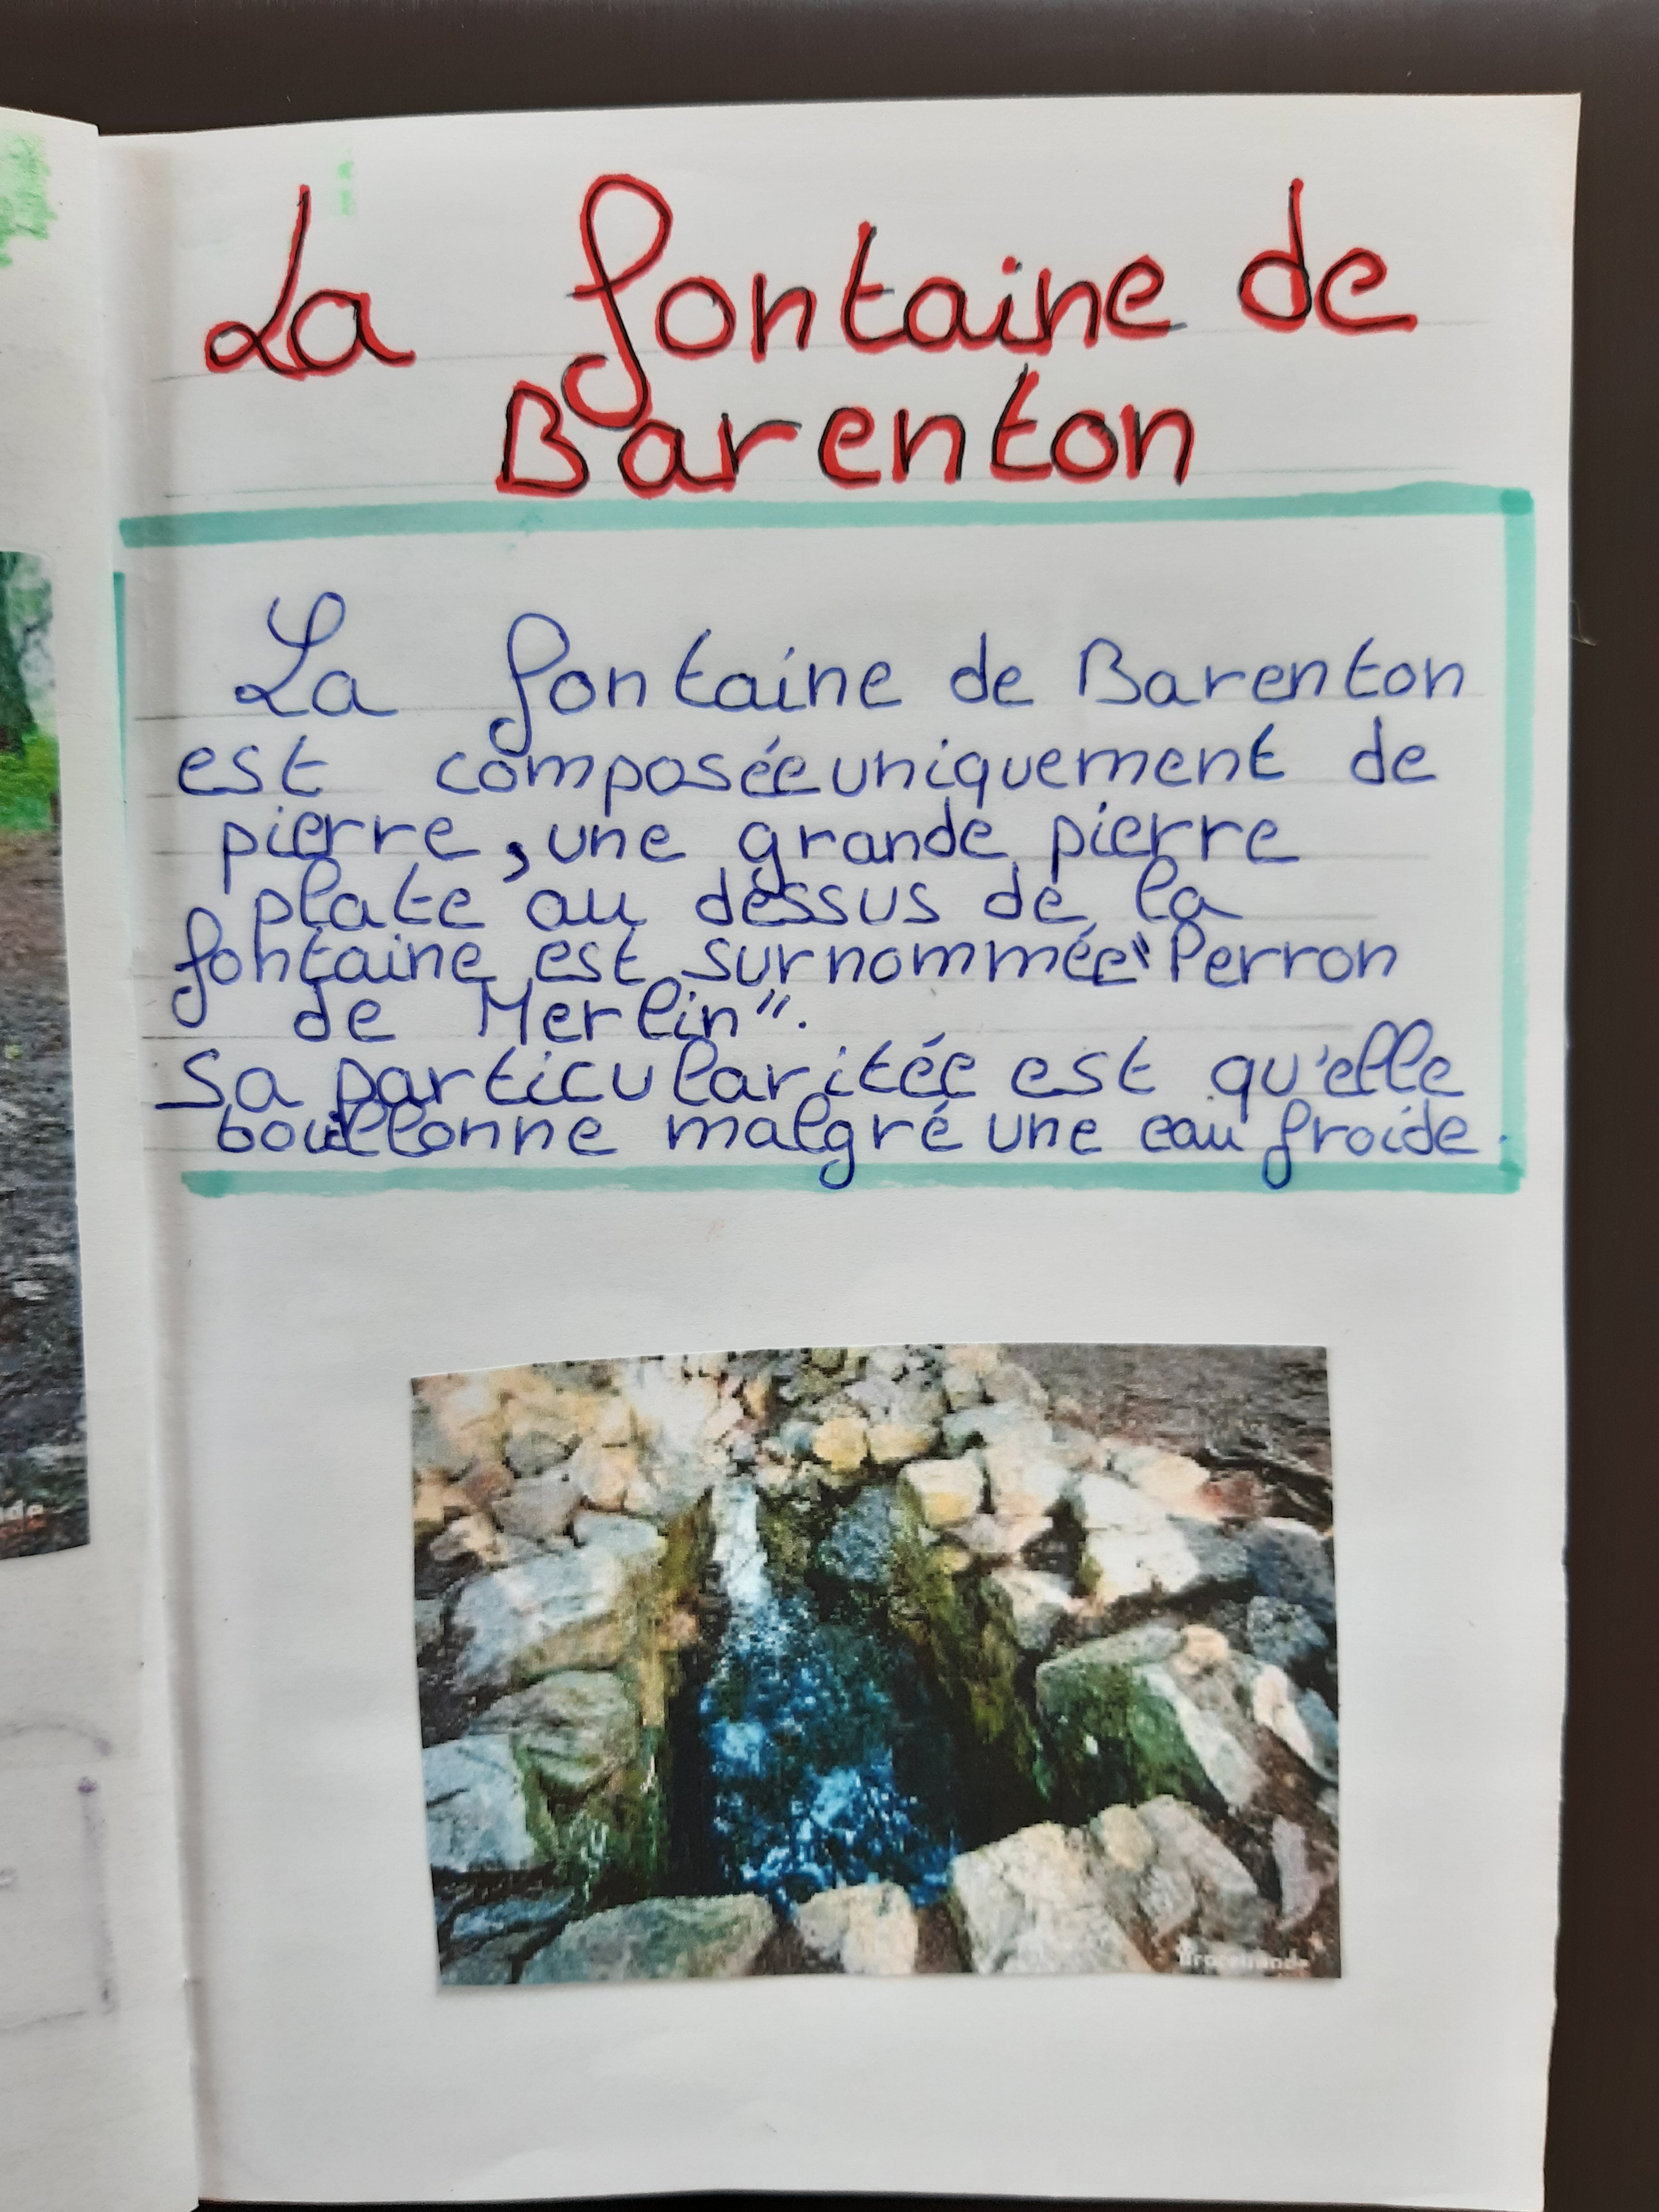 La fontaine de
Barenton
La fontaine de Barenton
est composée uniquement de
pierre, une grande pierre
plate au dessus de la
fontaine est surnommée "Perron
de Merlin".
Sa particularitée est qu'elle
bouillonne malgré une eau froide.
Brocéliande